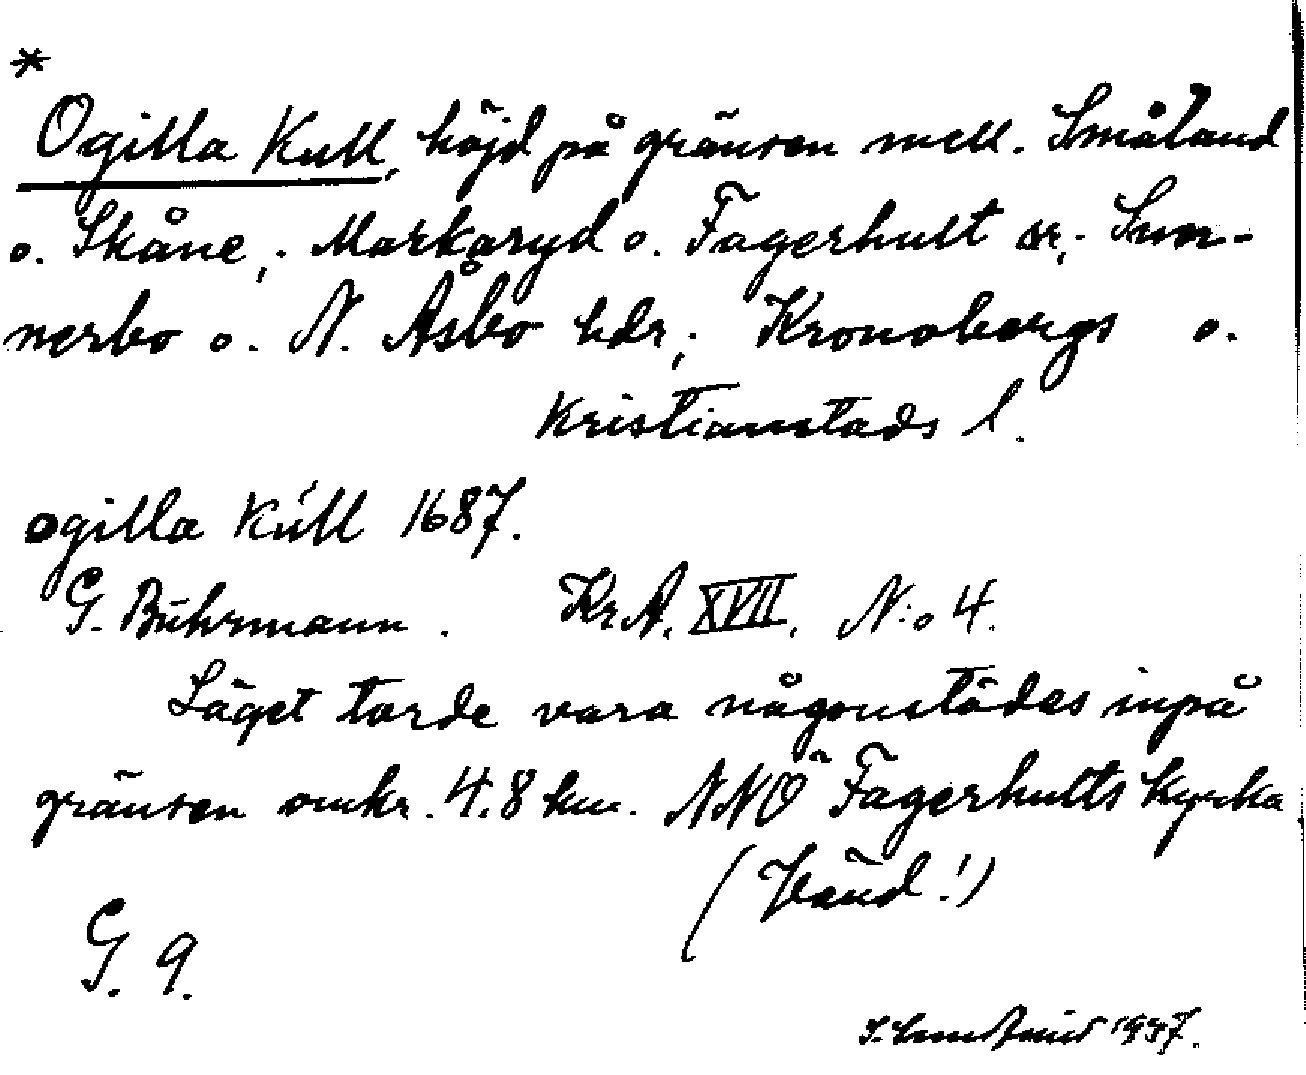 *
Ogilla Kull, höjd på gränsen mell. Småland
o. Skåne,; Markaryd o. Fagerhult sr,; Sun-
nerbo o. N. Åsbo hdr,; Kronobergs o.
Kristianstads l.
ogilla Kúll 1687.
G. Buhrmann. Kr.A. XVII. N:o 4.
Läget torde vara någonstädes inpå
gränsen omkr. 4.8 km. NNÖ Fagerhults kyrka
(Vänd!)
G. 9.